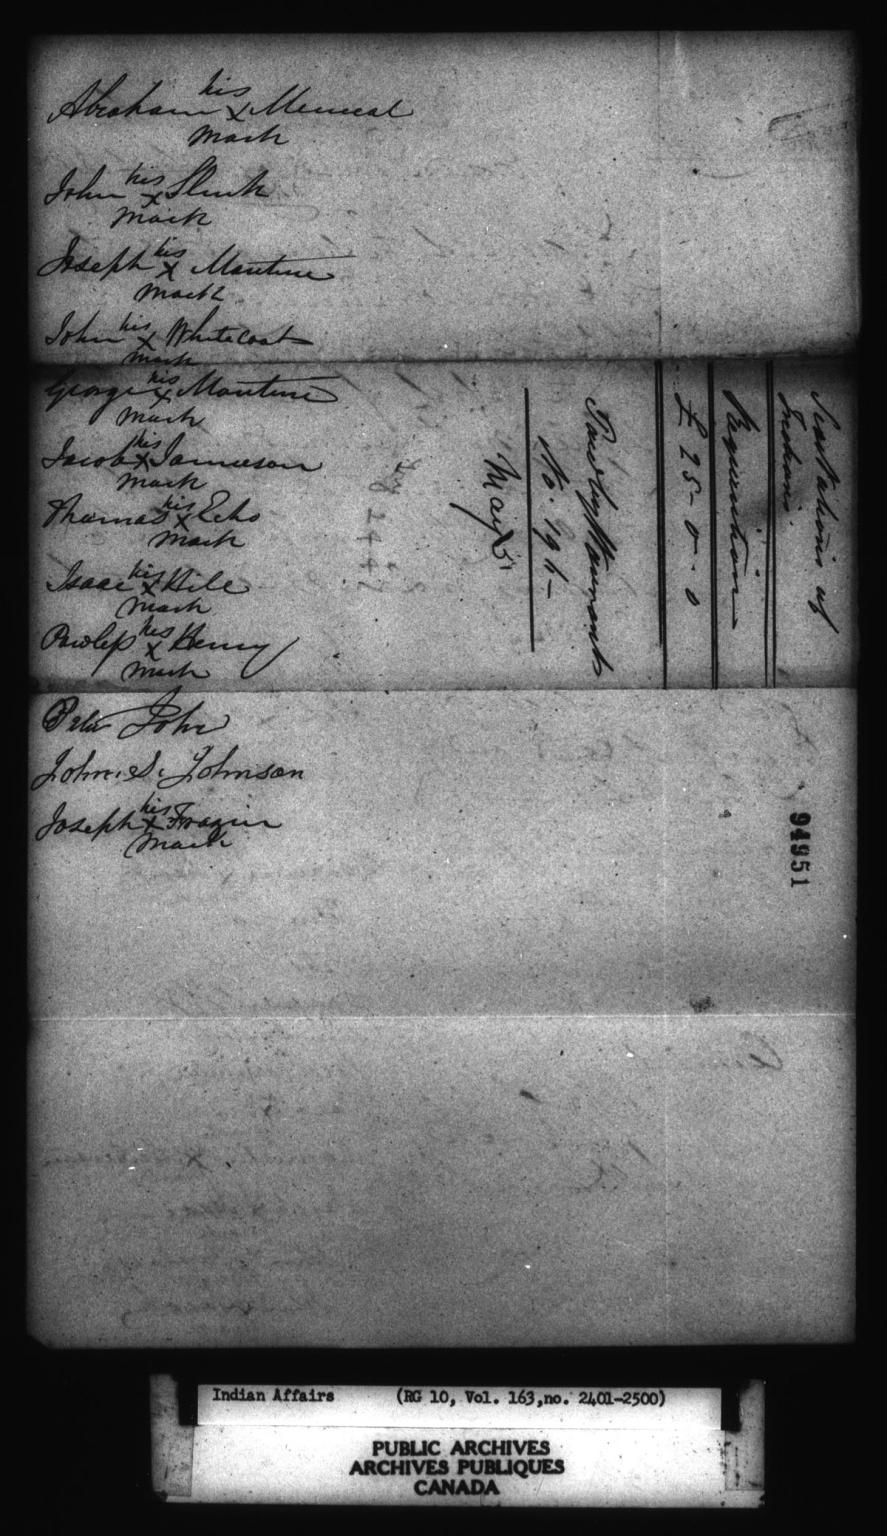 his
Abraham X
mark
his
John X Slink
mark
his
Joseph X Mantine
mark
his
John X Whitecoat
mark
his
George X Mantine
mark
his
Jacob X Jamieson
mark
his
Thomas X Echo
mark
his
Isaac X Hile
mark
his
X Henry
mark
Peter John
John S. Johnson
his
Joseph X Frazier
mark
of
Indians
Requisition
£25-0-0
Paid by Warrant
No.
May
94951
Indian Affairs (RG 10, Vol. 163,no. 2401-2500)
PUBLIC ARCHIVES
ARCHIVES PUBLIQUES
CANADA